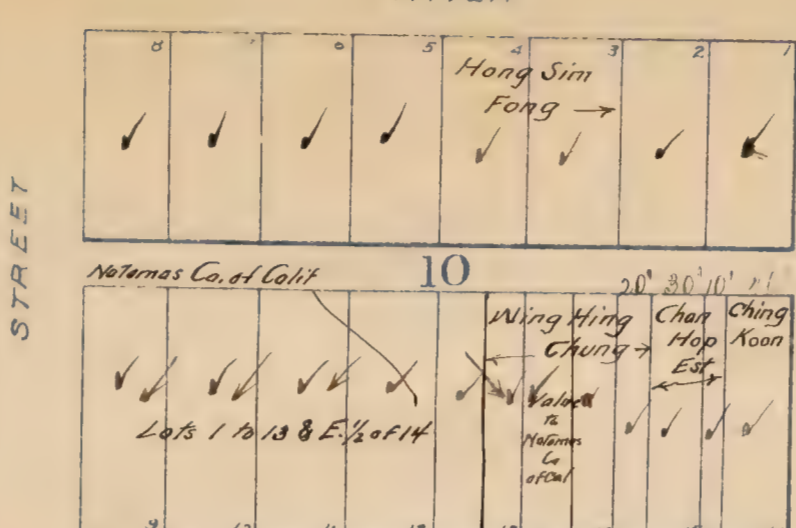 STREET
8 7 6 5 4 3 2 1
Hong Sim
Fong →
10
Natomas Co. of Calif
20' 30' 10'
Wing Hing
Chung →
Chan
Hop
Est
Ching
Koon
Lots 1 to 13 & E. 1/2 of 14
Value
to
Natomas
Co
of Cal
9